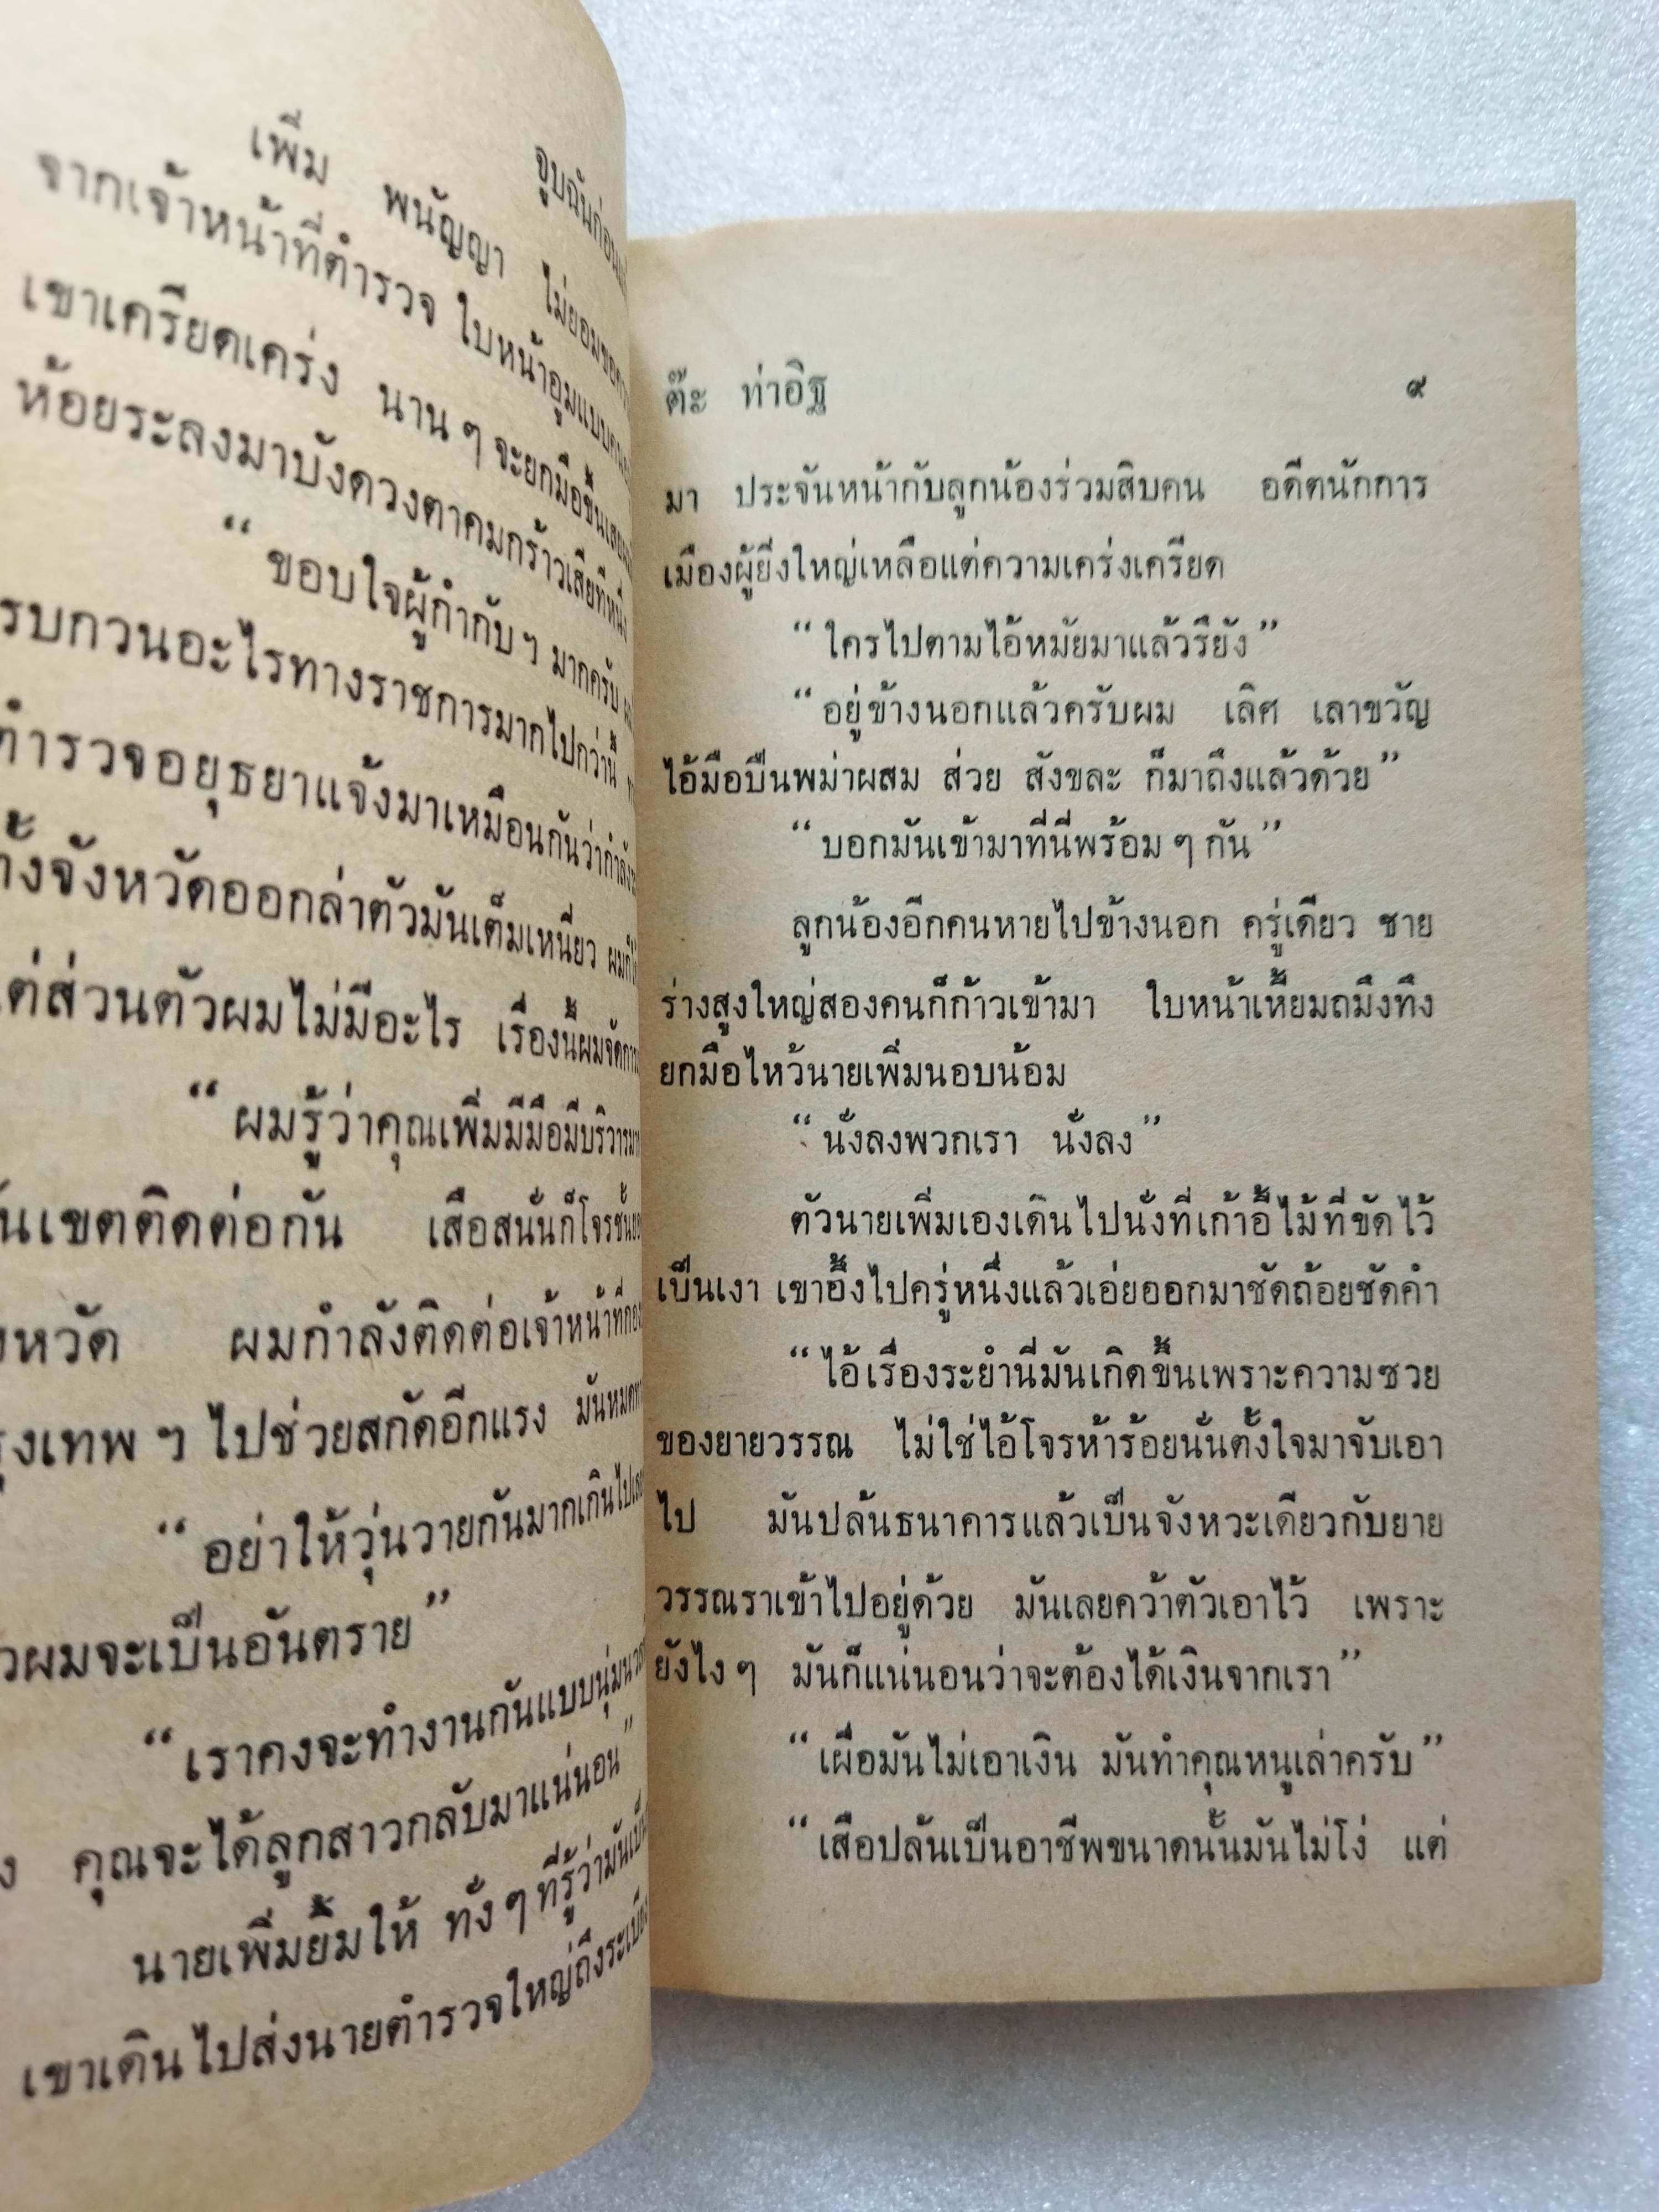 เพิ่ม พนัญญา
จากเจ้าหน้าที่ตำรวจ ใบหน้าอูม
เขาเครียดเคร่ง นาน ๆ จะยกมือขึ้น
ห้อยระลงมาบังดวงตาคมกร้าวเสียทีหนึ่ง
“ ขอบใจผู้กำกับ ฯ มากครับ
รบกวนอะไรทางราชการมากไปกว่านี้
ตำรวจอยุธยาแจ้งมาเหมือนกันว่ากำลัง
ทั้งจังหวัดออกล่าตัวมันเต็มเหนี่ยว
แต่ส่วนตัวผมไม่มีอะไร เรื่องนี้ผมจัดการ
“ ผมรู้ว่าคุณเพิ่มมีมือมีบริวาร
เขตติดต่อกัน เสือสนั่นก็โจรชั้น
หวัด ผมกำลังติดต่อเจ้าหน้าที่กอง
กรุงเทพ ฯ ไปช่วยสกัดอีกแรง
“ อย่าให้วุ่นวายกันมากเกินไป
ผมจะเป็นอันตราย ”
“ เราคงจะทำงานกันแบบนุ่ม
คุณจะได้ลูกสาวกลับมาแน่นอน ”
นายเพิ่มยิ้มให้ ทั้ง ๆ ที่รู้ว่ามันเป็น
เขาเดินไปส่งนายตำรวจใหญ่ถึงระเบียง
ต๊ะ ท่าอิฐ ๙
มา ประจันหน้ากับลูกน้องร่วมสิบคน อดีตนักการ
เมืองผู้ยิ่งใหญ่เหลือแต่ความเคร่งเครียด
“ ใครไปตามไอ้หมัยมาแล้วรึยัง ”
“ อยู่ข้างนอกแล้วครับผม เลิศ เลาขวัญ
ไอ้มือปืนพม่าผสม ส่วย สังขละ ก็มาถึงแล้วด้วย ”
“ บอกมันเข้ามาที่นี่พร้อม ๆ กัน ”
ลูกน้องอีกคนหายไปข้างนอก ครู่เดียว ชาย
ร่างสูงใหญ่สองคนก็ก้าวเข้ามา ใบหน้าเหี้ยมถมึงทึง
ยกมือไหว้นายเพิ่มนอบน้อม
“ นั่งลงพวกเรา นั่งลง ”
ตัวนายเพิ่มเองเดินไปนั่งที่เก้าอี้ไม้ที่ขัดไว้
เป็นเงา เขาอึ้งไปครู่หนึ่งแล้วเอ่ยออกมาชัดถ้อยชัดคำ
“ ไอ้เรื่องระยำนี่มันเกิดขึ้นเพราะความซวย
ของยายวรรณ ไม่ใช่ไอ้โจรห้าร้อยนั่นตั้งใจมาจับเอา
ไป มันปล้นธนาคารแล้วเป็นจังหวะเดียวกับยาย
วรรณราเข้าไปอยู่ด้วย มันเลยคว้าตัวเอาไว้ เพราะ
ยังไง ๆ มันก็แน่นอนว่าจะต้องได้เงินจากเรา ”
“ เผื่อมันไม่เอาเงิน มันทำคุณหนูเล่าครับ ”
“ เสือปล้นเป็นอาชีพขนาดนั้นมันไม่โง่ แต่